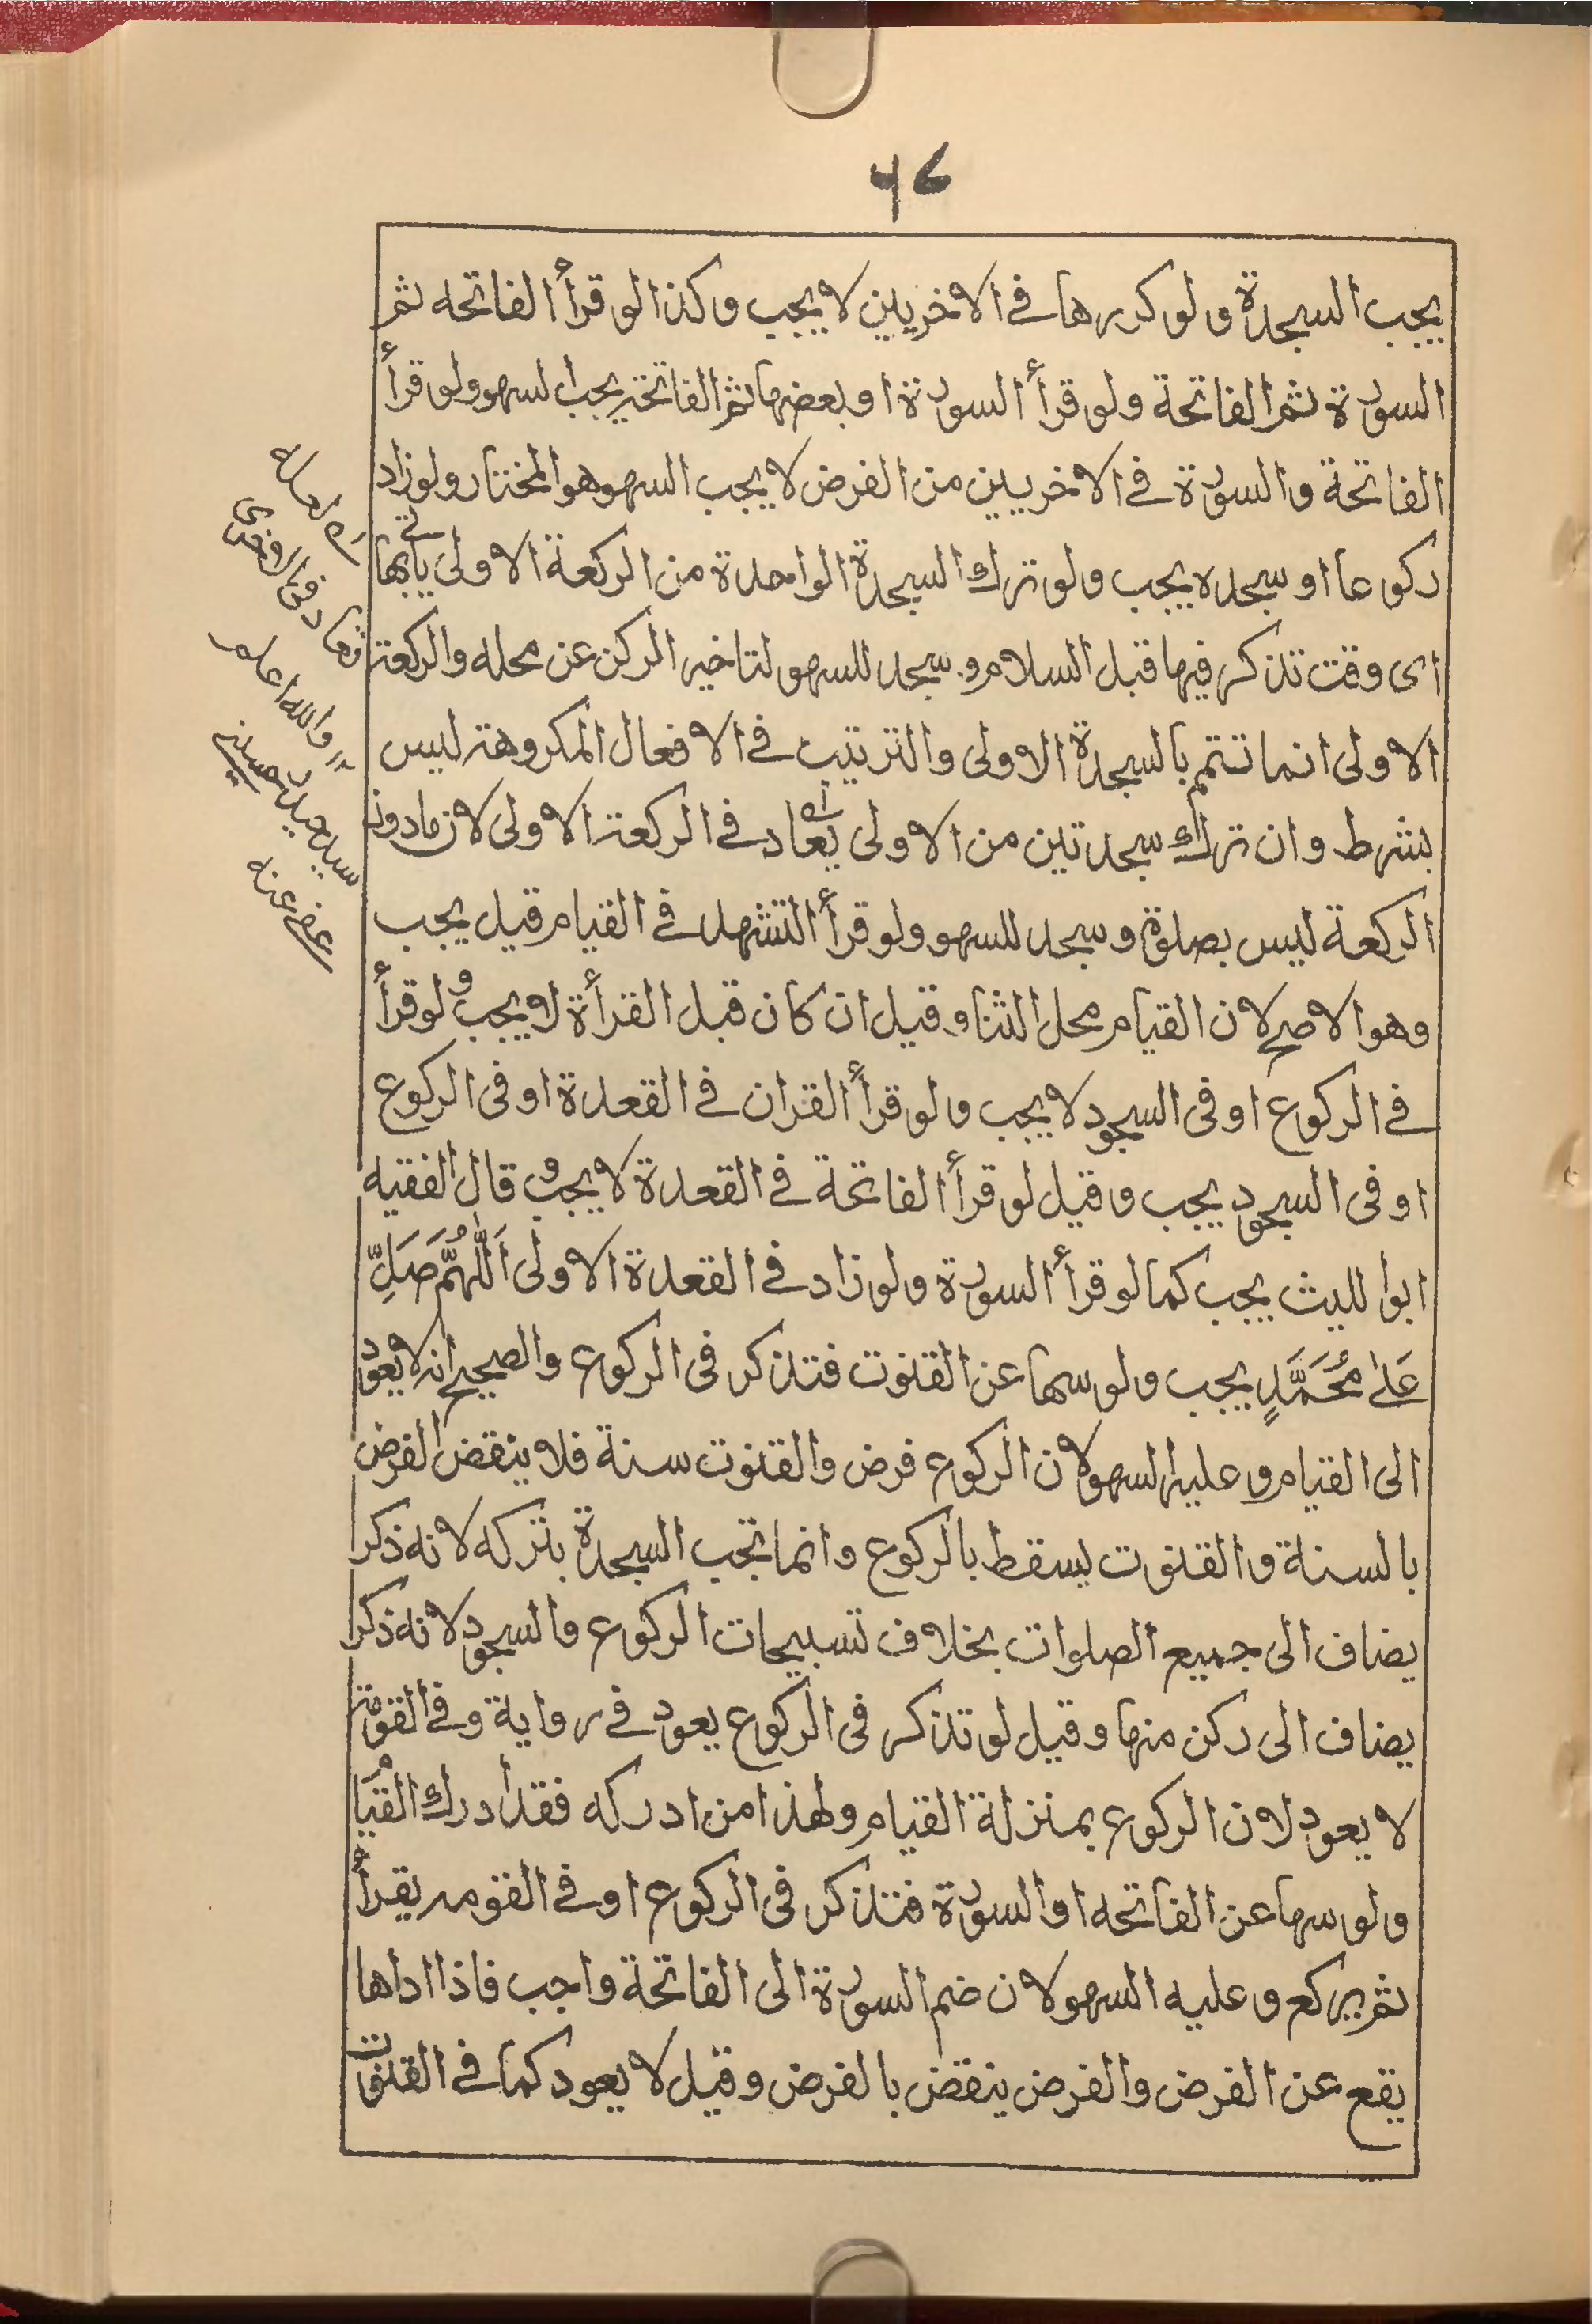 ٦٧
يجب السجدة ولو كررها في الاخريين لا يجب وكذا لو قرأ الفاتحه ثم
السورة ثم الفاتحة ولو قرأ السورة او بعضها ثم الفاتحة يجب السهو ولو قرأ
الفاتحة والسورة في الاخريين من الفرض لا يجب السهو هو المختار ولو زاد
ركوعا او سجده يجب ولو ترك السجدة الواحدة من الركعة الاولى يأتي بها
اى وقت تذكر فيها قبل السلام و سجد للسهو لتاخير الركن عن محله والركعة
الاولى انما تتم بالسجدة الاولى والترتيب في الافعال المكروهة ليس
بشرط وان ترك سجدتين من الاولى يعاد في الركعة الاولى لان مادون
الركعة ليس بصلوة وسجد للسهو ولو قرأ التشهد في القيام قيل يجب
وهو الاصح لان القيام محل الثنا وقيل ان كان قبل القرأة لا يجب ولو قرأ
في الركوع او فى السجود لا يجب ولو قرأ القران في القعدة او فى الركوع
او فى السجود يجب وقيل لو قرأ الفاتحة في القعدة لا يجب و قال الفقيه
ابوا لليث يجب كما لو قرأ السورة ولو زاد في القعدة الاولى اَللّٰهُمَّ صَلِّ
عَلىٰ مُحَمَّدٍ يجب ولو سها عن القنوت فتذكر فى الركوع والصحيح انه لا يعود
الى القيام و عليه السهو لان الركوع فرض والقنوت سنة فلا ينقض الفرض
بالسنة والقنوت يسقط بالركوع وانما تجب السجدة بتركه لانه ذكر
يضاف الى جميع الصلوات بخلاف تسبيحات الركوع والسجود لانه ذكر
يضاف الى ركن منها وقيل لو تذكر فى الركوع يعود في رواية وفي القومة
لا يعود لان الركوع بمنزلة القيام ولهذا من ادركه فقد أدرك القيام
ولو سها عن الفاتحه او السورة فتذكر فى الركوع او في القومه يقرأ
ثم يركع و عليه السهو لان ضم السورة الى الفاتحة واجب فاذا اداها
يقع عن الفرض والفرض ينقض بالفرض وقيل لا يعود كما في القنوت
والله اعلم
عفى عنه